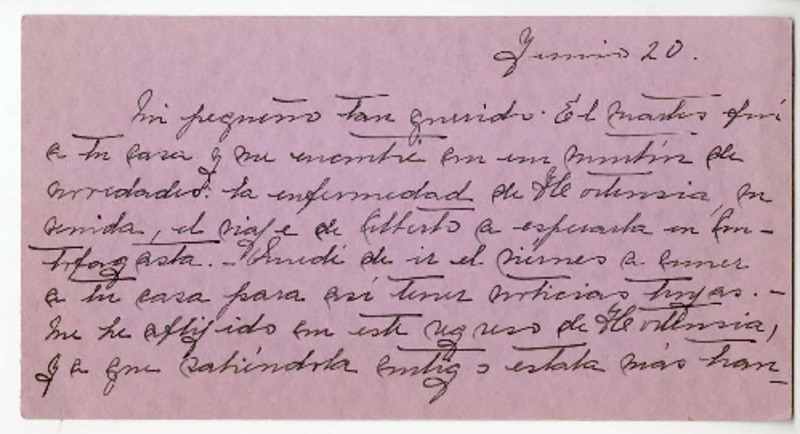 Junio 20.
Mi pequeño tan querido. El martes fuí
a tu casa y me encontré con un montón de
novedades: la enfermedad de Hortensia, su
venida, el viaje de Alberto a esperarla en An-
tofagasta. - Quedé de ir el viernes a comer
a tu casa para así tener noticias tuyas. -
Me he afligido con este regreso de Hortensia,
ya que sabiéndola contigo estaba más tran-